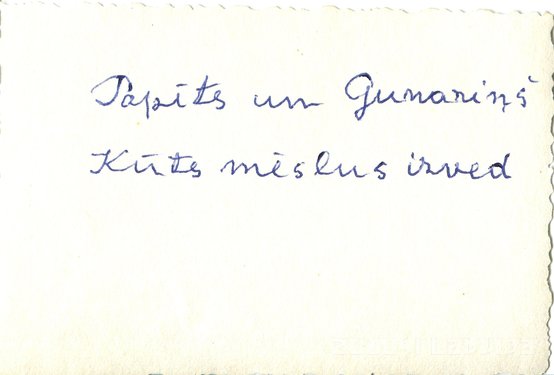 Papīts un Gunariņš
Kūts mēslus izved